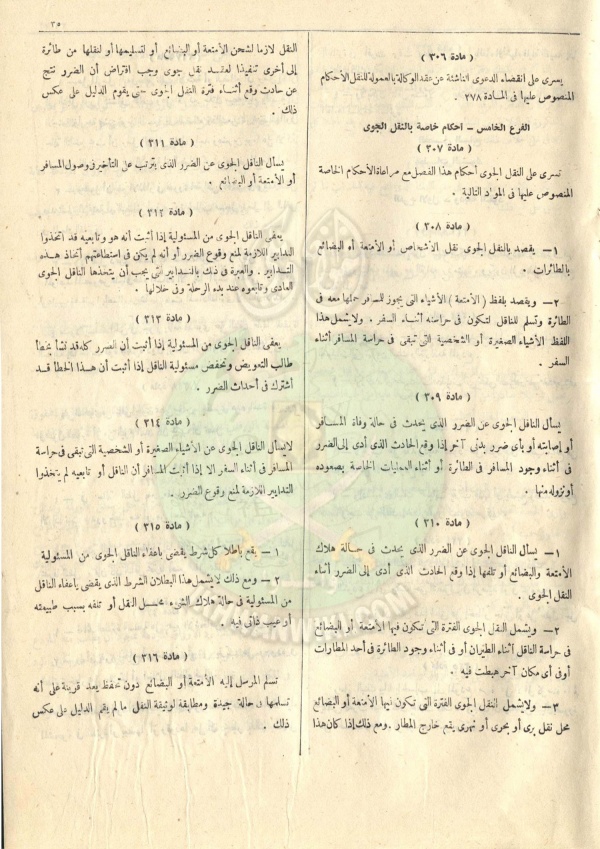 ٣٥
( مادة ٣٠٦ )
يسرى على انقضاء الدعوى الناشئة عن عقد الوكالة بالعمولة للنقل الأحكام
المنصوص عليها فى المادة ٢٧٨ .
الفرع الخامس – احكام خاصة بالنقل الجوى
( مادة ٣٠٧ )
تسرى على النقل الجوى أحكام هذا الفصل مع مراعاة الأحكام الخاصة
المنصوص عليها فى المواد التالية .
( مادة ٣٠٨ )
١ – يقصد بالنقل الجوى نقل الأشخاص أو الأمتعة أو البضائع
بالطائرات .
٢ – ويقصد بلفظ ( الأمتعة ) الأشياء التى يجوز للمسافر حملها معه فى
الطائرة وتسلم للناقل لتكون فى حراسته أثناء السفر . ولا يشمل هذا
اللفظ الأشياء الصغيرة أو الشخصية التى تبقى فى حراسة المسافر أثناء
السفر .
( مادة ٣٠٩ )
يسأل الناقل الجوى عن الضرر الذى يحدث فى حالة وفاة المسافر
أو إصابته أو بأى ضرر بدنى آخر إذا وقع الحادث الذى أدى إلى الضرر
فى أثناء وجود المسافر فى الطائرة أو أثناء العمليات الخاصة بصعوده
أو نزوله منها .
( مادة ٣١٠ )
١ – يسأل الناقل الجوى عن الضرر الذى يحدث فى حالة هلاك
الأمتعة والبضائع أو تلفها إذا وقع الحادث الذى أدى إلى الضرر أثناء
النقل الجوى .
٢ – ويشمل النقل الجوى الفترة التى تكون فيها الأمتعة أو البضائع
فى حراسة الناقل أثناء الطيران أو فى أثناء وجود الطائرة فى أحد المطارات
أو فى أى مكان آخر هبطت فيه .
٣ – ولا يشمل النقل الجوى الفترة التى تكون فيها الأمتعة أو البضائع
محل نقل برى أو بحرى أو نهرى يقع خارج المطار . ومع ذلك إذا كان هذا
النقل لازما لشحن الأمتعة أو البضائع أو لتسليمها أو لنقلها من طائرة
إلى أخرى تنفيذا لعقد نقل جوى وجب افتراض أن الضرر نتج
عن حادث وقع أثناء فترة النقل الجوى حتى يقوم الدليل على عكس
ذلك .
( مادة ٣١١ )
يسأل الناقل الجوى عن الضرر الذى يترتب على التأخير فى وصول المسافر
أو الأمتعة أو البضائع .
( مادة ٣١٢ )
يعفى الناقل الجوى من المسئولية إذا أثبت أنه هو وتابعيه قد اتخذوا
التدابير اللازمة لمنع وقوع الضرر أو أنه لم يكن فى استطاعتهم اتخاذ هذه
التدابير . والعبرة فى ذلك بالتدابير التى يجب أن يتخذها الناقل الجوى
العادى وتابعوه عند بدء الرحلة وفى خلالها .
( مادة ٣١٣ )
يعفى الناقل الجوى من المسئولية إذا أثبت أن الضرر كله قد نشأ بخطأ
طالب التعويض وتخفض مسئولية الناقل إذا أثبت أن هذا الخطأ قد
اشترك فى أحداث الضرر .
( مادة ٣١٤ )
لايسأل الناقل الجوى عن الأشياء الصغيرة أو الشخصية التى تبقى فى حراسة
المسافر فى أثناء السفر الا إذا أثبت المسافر أن الناقل أو تابعيه لم يتخذوا
التدابير اللازمة لمنع وقوع الضرر .
( مادة ٣١٥ )
١ – يقع باطلا كل شرط يقضى باعفاء الناقل الجوى من المسئولية
٢ – ومع ذلك لا يشمل هذا البطلان الشرط الذى يقضى باعفاء الناقل
من المسئولية فى حالة هلاك الشىء محل النقل أو تلفه بسبب طبيعته
أو عيب ذاتى فيه .
( مادة ٣١٦ )
تسلم المرسل إليه الأمتعة أو البضائع دون تحفظ يعد قرينة على أنه
تسلمها فى حالة جيدة ومطابقة لوثيقة النقل ما لم يقم الدليل على عكس
ذلك .